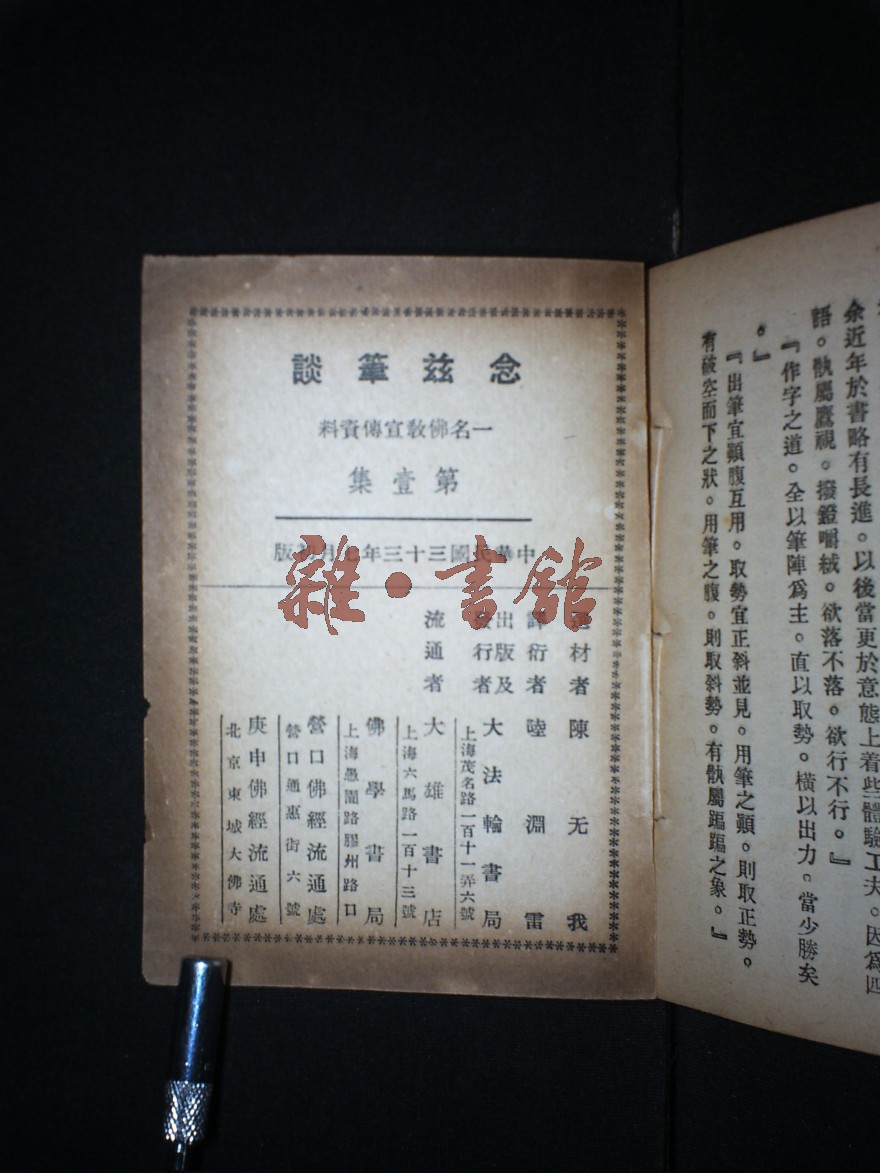 余近年於書略有長進。以後當更於意態上着些體驗工夫。因爲四
語。骫屬鷹視。撥鐙嚼絨。欲落不落。欲行不行。』
『作字之道。全以筆陣爲主。直以取勢。橫以出力。當少勝矣
。』
『出筆宜顚腹互用。取勢宜正斜並見。用筆之顚。則取正勢。
有破空而下之狀。用筆之腹。則取斜勢。有骫屬蹁躚之象。』
念兹筆談
一名佛敎宣傳資料
第壹集
中華民國三十三年 月 版
材者 陳无我
譯衍者 陸淵雷
出版及
發行者 大法輪書局
上海茂名路一百十一弄六號
流通者 大雄書店
上海六馬路一百十三號
佛學書局
上海愚園路膠州路口
營口佛經流通處
營口通惠街六號
庚申佛經流通處
北京東城大佛寺
雜·書館